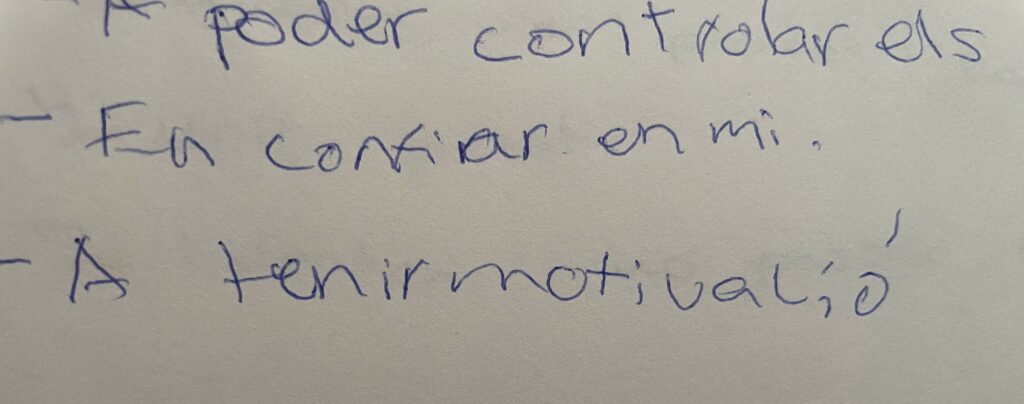 - A poder controlar els
- En confiar en mi.
- A tenir motivació